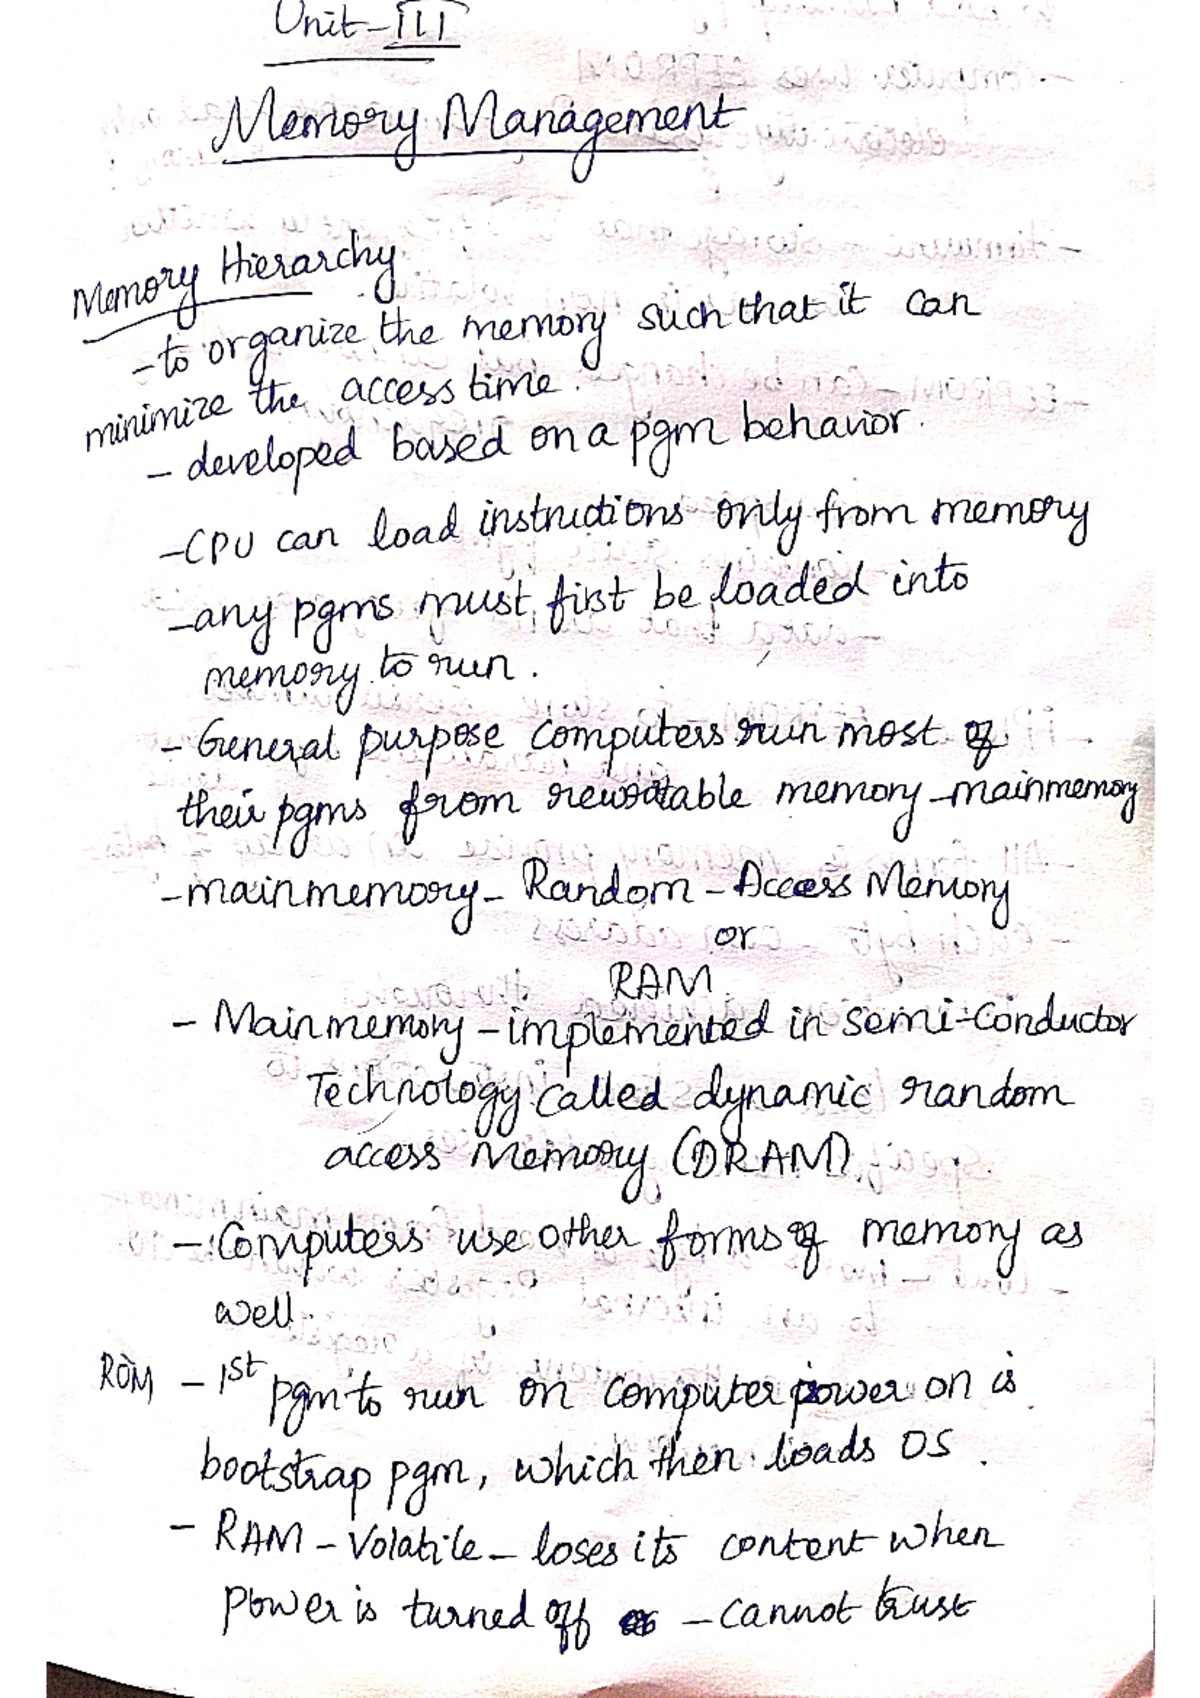 Unit-III
Memory Management
Memory Hierarchy
- to organize the memory such that it can
minimize the access time.
- developed based on a pgm behavior.
- CPU can load instructions only from memory
- any pgms must first be loaded into
memory to run.
- General purpose computers run most of
their pgms from rewritable memory - mainmemory
- mainmemory - Random - Access Memory
or
RAM
- Mainmemory - implemented in semi-conductor
Technology called dynamic random
access Memory (DRAM).
- Computers use other forms of memory as
well.
ROM - 1st pgm to run on computer power on is
bootstrap pgm, which then loads OS.
- RAM - Volatile - loses its content when
power is turned off - cannot trust